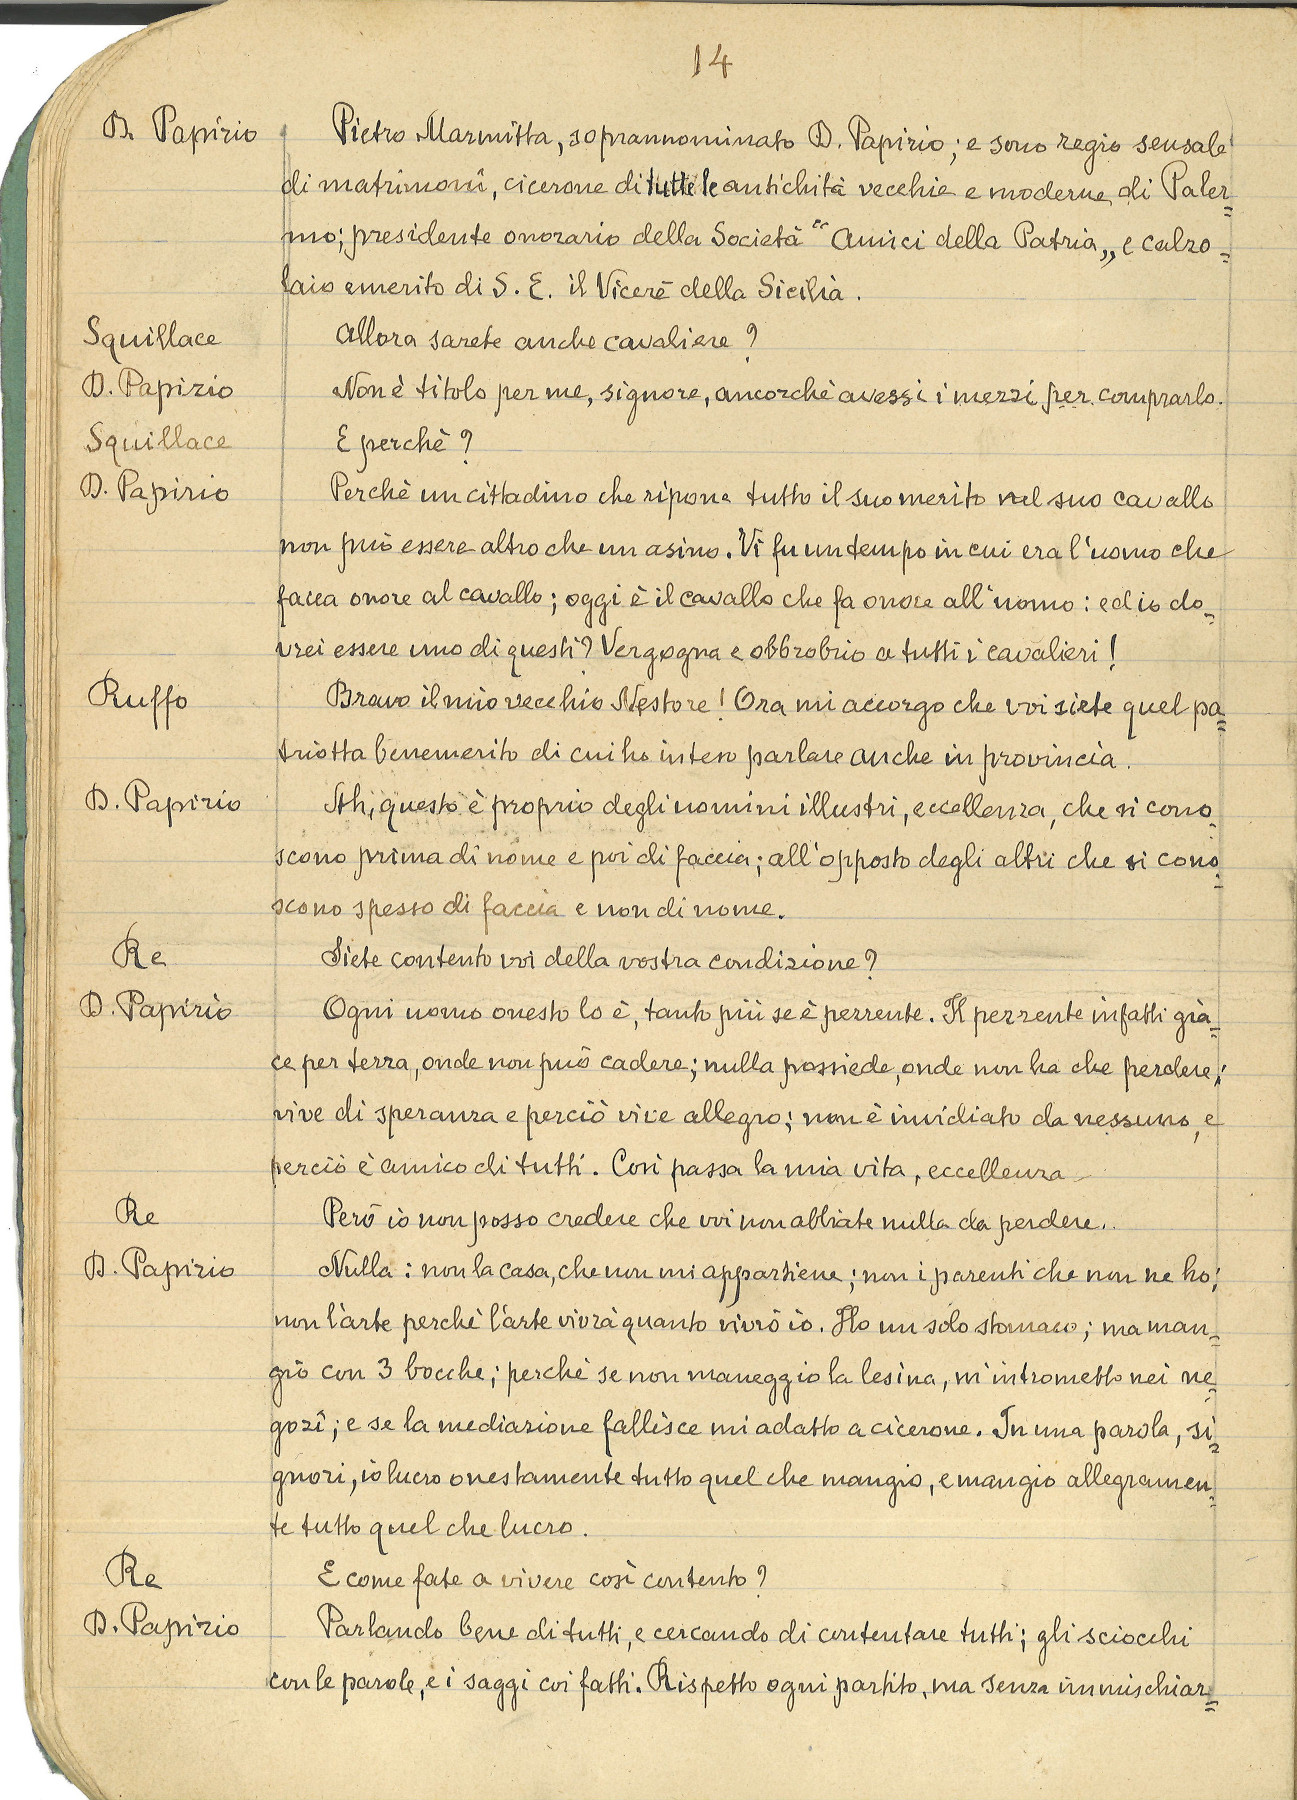 14
D. Papirio Pietro Marmitta, soprannominato D. Papirio; e sono regio sensale
di matrimonî, cicerone di tutte le antichità vecchie e moderne di Paler=
mo; presidente onorario della Società "Amici della Patria„ e calzo=
laio emerito di S. E. il Viceré della Sicilia.
Squillace Allora sarete anche cavaliere?
D. Papirio Non è titolo per me, signore, ancorchè avessi i mezzi per comprarlo.
Squillace E perchè?
D. Papirio Perchè un cittadino che ripone tutto il suo merito nel suo cavallo
non può essere altro che un asino. Vi fu un tempo in cui era l'uomo che
facea onore al cavallo; oggi è il cavallo che fa onore all'uomo: ed io do=
vrei essere uno di questi? Vergogna e obbrobrio a tutti i cavalieri!
Ruffo Bravo il mio vecchio Nestore! Ora mi accorgo che voi siete quel pa=
triotta benemerito di cui ho inteso parlare anche in provincia.
D. Papirio Ah, questo è proprio degli uomini illustri, eccellenza, che si cono=
scono prima di nome e poi di faccia; all'opposto degli altri che si cono=
scono spesso di faccia e non di nome.
Re Siete contento voi della vostra condizione?
D. Papirio Ogni uomo onesto lo è, tanto più se è pezzente. Il pezzente infatti gia=
ce per terra, onde non può cadere; nulla possiede, onde non ha che perdere;
vive di speranza e perciò vive allegro; non è invidiato da nessuno, e
perciò è amico di tutti. Così passa la mia vita, eccellenza
Re Però io non posso credere che voi non abbiate nulla da perdere..
D. Papirio Nulla: non la casa, che non mi appartiene; non i parenti che non ne ho;
non l'arte perchè l'arte vivrà quanto vivrò io. Ho un solo stomaco; ma man=
gio con 3 bocche; perchè se non maneggio la lesina, m'intrometto nei ne=
gozî; e se la mediazione fallisce mi adatto a cicerone. In una parola, si=
gnori, io lucro onestamente tutto quel che mangio, e mangio allegramen=
te tutto quel che lucro.
Re E come fate a vivere così contento?
D. Papirio Parlando bene di tutti, e cercando di contentare tutti; gli sciocchi
con le parole, e i saggi coi fatti. Rispetto ogni partito, ma senza immischiar=